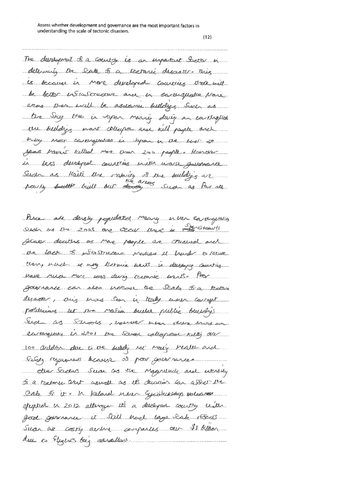 Assess whether development and governance are the most important factors in
understanding the scale of tectonic disasters.
(12)
The development of a country is an important factor in
determining the scale of a tectonic disaster. This
is because in more developed countries there will
be better infrastructure and in earthquake prone
areas there will be advanced buildings such as
the Sky tree in Japan meaning during an earthquake
the buildings wont collapse and kill people and
many most earthquakes in Japan in the last
years havent killed more than 200 people. However
in less developed countries with worse governance
such as Haiti the majority of the buildings are
poorly built but
areas
such as Port au
Prince are densely populated meaning when earthquakes
such as the 2005 one occur there is significantly
greater deaths as more people are crushed and
the lack of infrastructure makes it harder to rescue
them, which is why tectonic hazards in developing countries
have much more loss during tectonic events. Poor
governance can also increase the scale of a tectonic
disaster, this was seen in Italy when corrupt
politicians let the mafias build public buildings
such as schools, however when there was an
earthquake in 2001 the school collapsed killing over
100 children due to the building not meeting health and
safety regulations because of poor governance.
Other factors such as the magnitude and intensity
of a tectonic event as well as its duration can affect the
scale of it. In Iceland when Eyjafjallajokull volcano
erupted in 2012 although its a developed country with
good governance it still had large scale effects
such as costing airline companies over $1 billion
due to flights being cancelled.